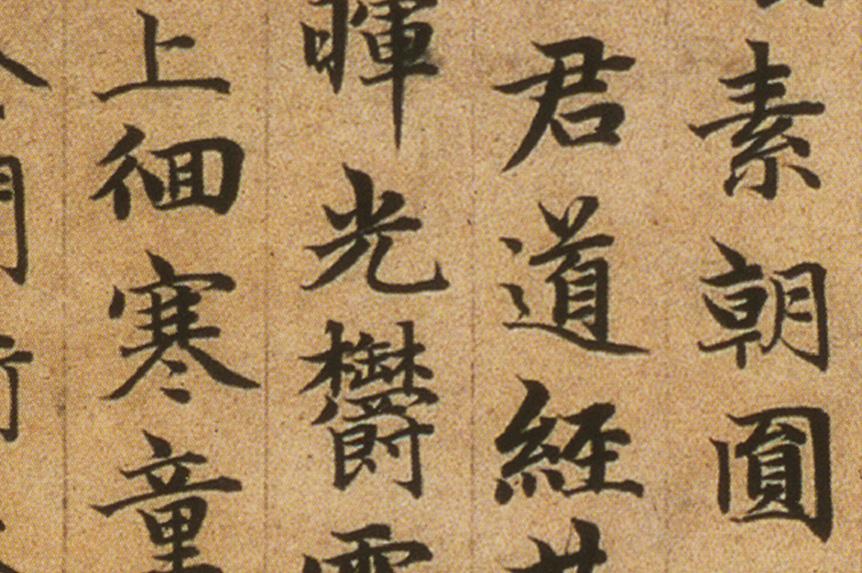 素朝圎
君道經
暉光欝
上徊寒童